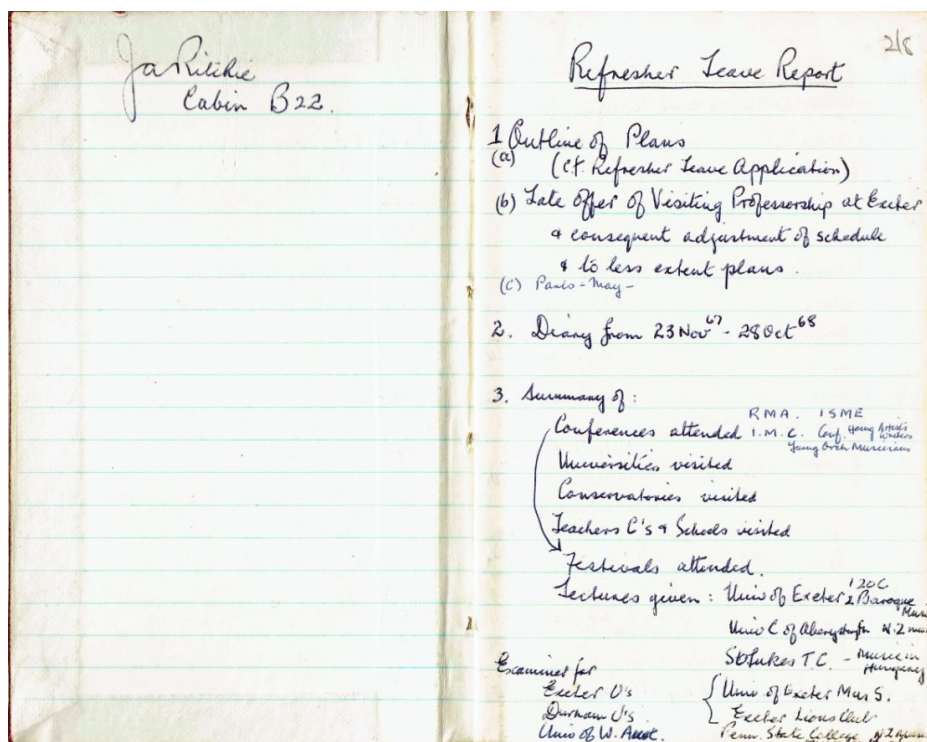 Ja Ritchie
Cabin B22.
2/8
Refresher Leave Report
1 Outline of Plans
(a) (cf. Refresher Leave Application)
(b) Late offer of Visiting Professorship at Exeter
& consequent adjustment of schedule
& to less extent plans.
(c) Paris - May -
2. Diary from 23 Nov 67 - 28 Oct 68
3. Summary of:
Conferences attended RMA. ISME
I.M.C. Conf. Young Artists
Writers
Young Orch Musicians
Universities visited
Conservatories visited
Teachers C's & Schools visited
Festivals attended.
Lectures given: Univ of Exeter 1 20C
2 Baroque Music
Univ C of Aberystwyth N.Z. music
St Lukes T.C. - Music in
Hungary
Examiner for
Exeter U's
Durham U's
Univ of W. Aust.
Univ of Exeter Mus S.
Exeter Lions Club
Penn. State College NZ